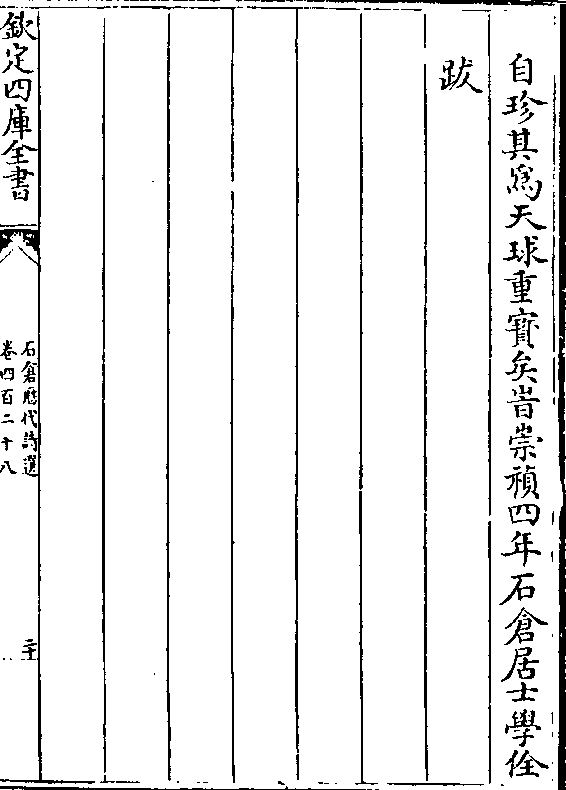 自珍其爲天球重寳矣旹崇禎四年石倉居士學佺
跋
欽定四庫全書
石倉歴代詩選
卷四百二十八
二十